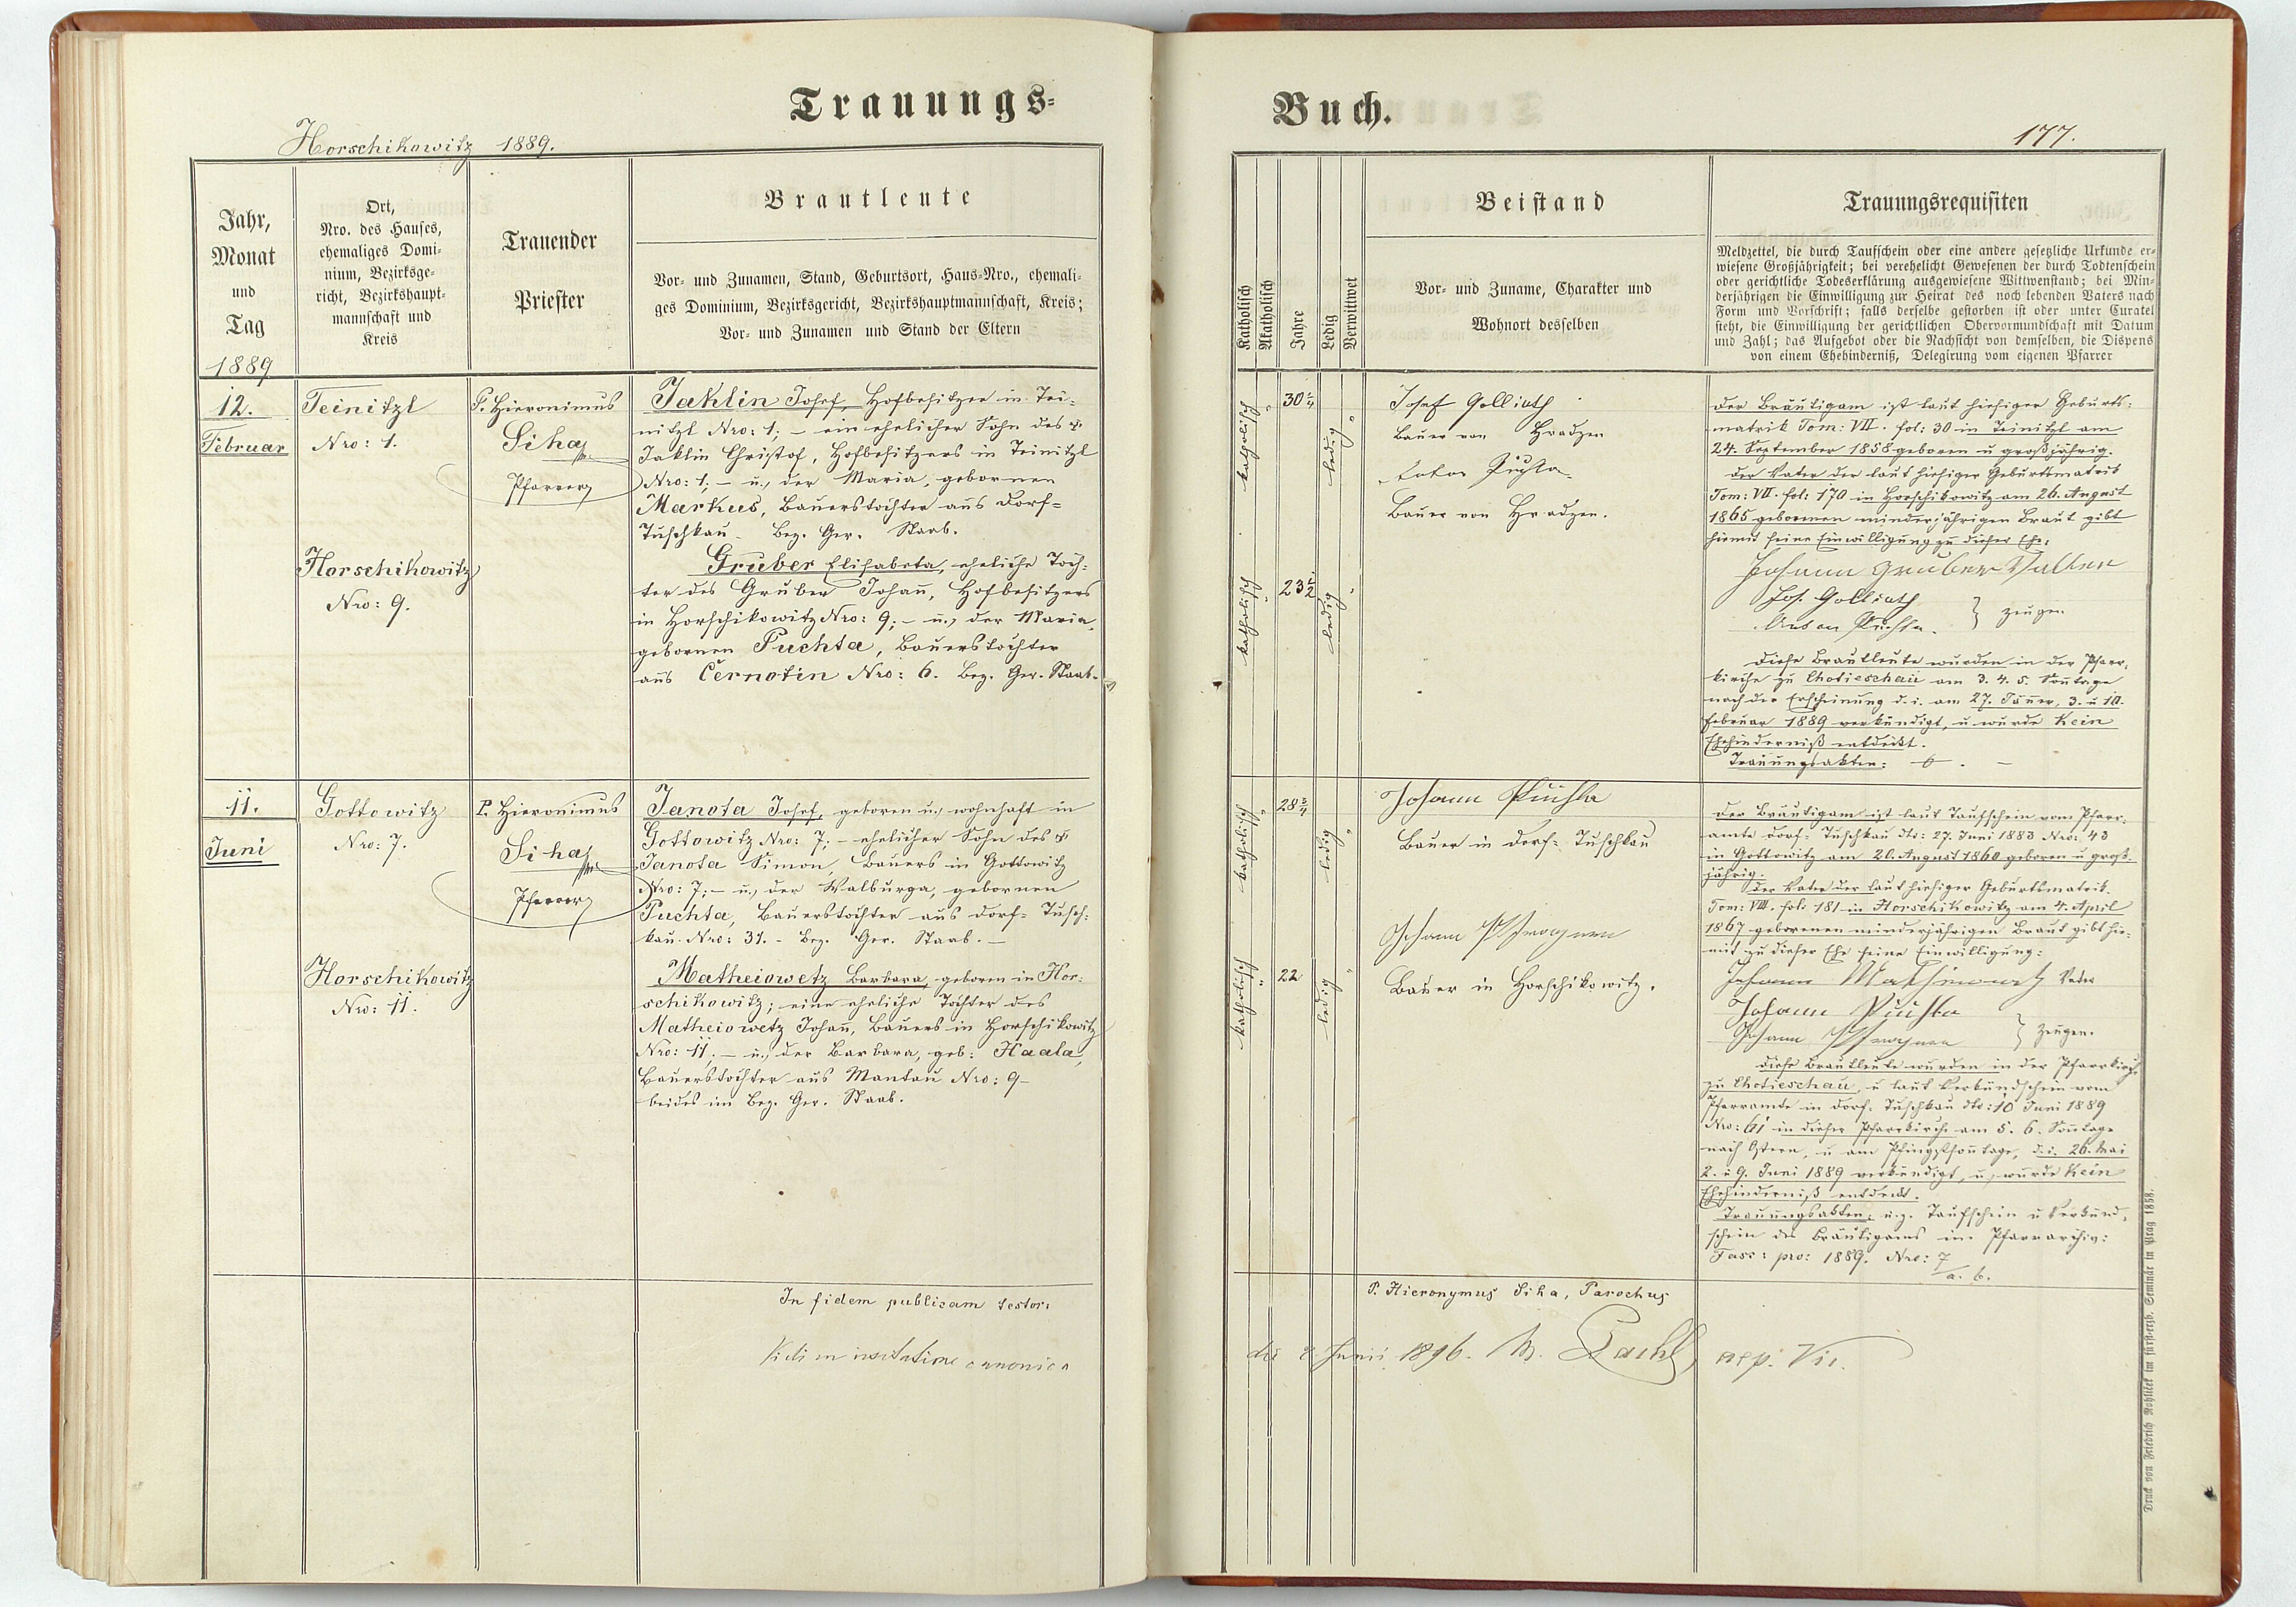 Trauungs-
Horschikowitz 1889.
Jahr,
Monat
und
Tag
1889
Ort,
Nro. des Hauses,
ehemaliges Domi-
nium, Bezirksge-
richt, Bezirkshaupt-
mannschaft und
Kreis
Trauender
Priester
Brautleute
Vor- und Zunamen, Stand, Geburtsort, Haus-Nro., ehemali-
ges Dominium, Bezirksgericht, Bezirkshauptmannschaft, Kreis;
Vor- und Zunamen und Stand der Eltern
12.
Februar
Teinitzl
Nro: 1.
P. Hieronimus
Siha
Pfarrer
Jaklin Josef, Hofbesitzer in Tei-
nitzl Nro: 1; – ein ehelicher Sohn des
Jaklin Christof, Hofbesitzers in Teinitzl
Nro: 1; – u. der Maria, gebornen
Markus, Bauerstochter aus Dorf-
Tuschkau. Bez. Ger. Staab.
Horschikowitz
Nro: 9.
Gruber Elisabeta, eheliche Toch-
ter des Gruber Johañ, Hofbesitzers
in Horschikowitz Nro: 9; – u. der Maria,
gebornen Puchta, Bauerstochter
aus Černotin Nro: 6. Bez. Ger. Staab.
11.
Juni
Gottowitz
Nro: 7.
P. Hieronimus
Siha
Pfarrer
Janota Josef, geboren u. wohnhaft in
Gottowitz Nro: 7; – ehelicher Sohn des
Janota Simon, Bauers in Gottowitz
Nro: 7; – u. der Walburga, gebornen
Puchta, Bauerstochter aus Dorf- Tusch-
kau. Nro: 31. - Bez. Ger. Staab. –
Horschikowitz
Nro: 11.
Matheiowetz Barbara, geboren in Hor-
schikowitz; eine eheliche Tochter des
Matheiowetz Johañ, Bauers in Horschikowitz
Nro: 11; – u. der Barbara, geb: Haala,
Bauerstochter aus Mantau Nro: 9 –
beides im Bez. Ger. Staab.
In fidem publicam testor:
Vidi in visitatione canonica
Buch.
177.
Katholisch
Akatholisch
Jahre
Ledig
Verwittwet
Beistand
Vor- und Zuname, Charakter und
Wohnort desselben
Trauungsrequisiten
Meldzettel, die durch Taufschein oder eine andere gesetzliche Urkunde er-
wiesene Großjährigkeit; bei verehelicht Gewesenen der durch Todtenschein
oder gerichtliche Todeserklärung ausgewiesene Wittwenstand; bei Min-
derjährigen die Einwilligung zur Heirat des noch lebenden Vaters nach
Form und Vorschrift; falls derselbe gestorben ist oder unter Curatel
steht, die Einwilligung der gerichtlichen Obervormundschaft mit Datum
und Zahl; das Aufgebot oder die Nachsicht von demselben, die Dispens
von einem Ehehinderniß, Delegirung vom eigenen Pfarrer
katholisch
30
ledig
Josef Golliath
Bauer von Hradzen
Anton Puchta
Bauer von Hradzen.
katholisch
23 1/2
ledig
Der Bräutigam ist laut hiesiger Geburts-
matrik Tom: VII. fol: 30 in Teinitzl am
24. September 1858 geboren u großjährig.
Der Vater der laut hiesiger Geburtsmatrik
Tom: VII. fol: 170 in Horschikowitz am 26. August
1865 geborenen minderjährigen Braut gibt
hiemit seine Einwilligung zu dieser Ehe:
Johann Gruber Vatter
Jos. Golliath
Anton Puchta.
} Zeugen
Diese Brautleute wurden in der Pfarr-
kirche zu Chotieschau am 3. 4. 5. Soñtage
nach der Erscheinung d. i. am 27. Jäñer, 3. u 10.
Februar 1889 verkündigt, u wurde kein
Ehehinderniß entdeckt.
Trauungsakten:
katholisch
28 3/4
ledig
Johann Puchta
Bauer in Dorf- Tuschkau
Johann
katholisch
22
ledig
Bauer in Horschikowitz.
Der Bräutigam ist laut Taufschein vom Pfarr-
amte Dorf- Tuschkau dto: 27. Juni 1883 Nro: 43
in Gottowitz am 20. August 1860 geboren u groß-
jährig.
Der Vater der laut hiesiger Geburtsmatrik
Tom: VIII. fol: 181 in Horschikowitz am 4. April
1867 geborenen minderjährigen Braut gibt hie-
mit zu dieser Ehe seine Einwilligung:
Johann Vater
Johann Puchta
Johann
} Zeugen.
Diese Brautleute wurden in der Pfarrkirche
zu Chotieschau, u laut Verkündschein vom
Pfarramte in Dorf- Tuschkau dto: 10 Juni 1889
Nro: 61 in dieser Pfarrkirche am 5. 6. Soñtage
nach Ostern, u am Pfingstsoñtage, d. i. 26. Mai
2. u 9. Juni 1889 verkündigt, u. wurde kein
Ehehinderniß entdeckt.
Trauungsakten: u. z. Taufschein u Verkünd-
schein des Bräutigams im Pfarrarchiv:
Fasc: pro: 1889. Nro: 7
a. b.
P. Hieronymus Siha, Parochus
die 2 Junii 1896. Vic.
Druck von Friedrich Rohliček im fürst-erzb. Seminär in Prag 1858.